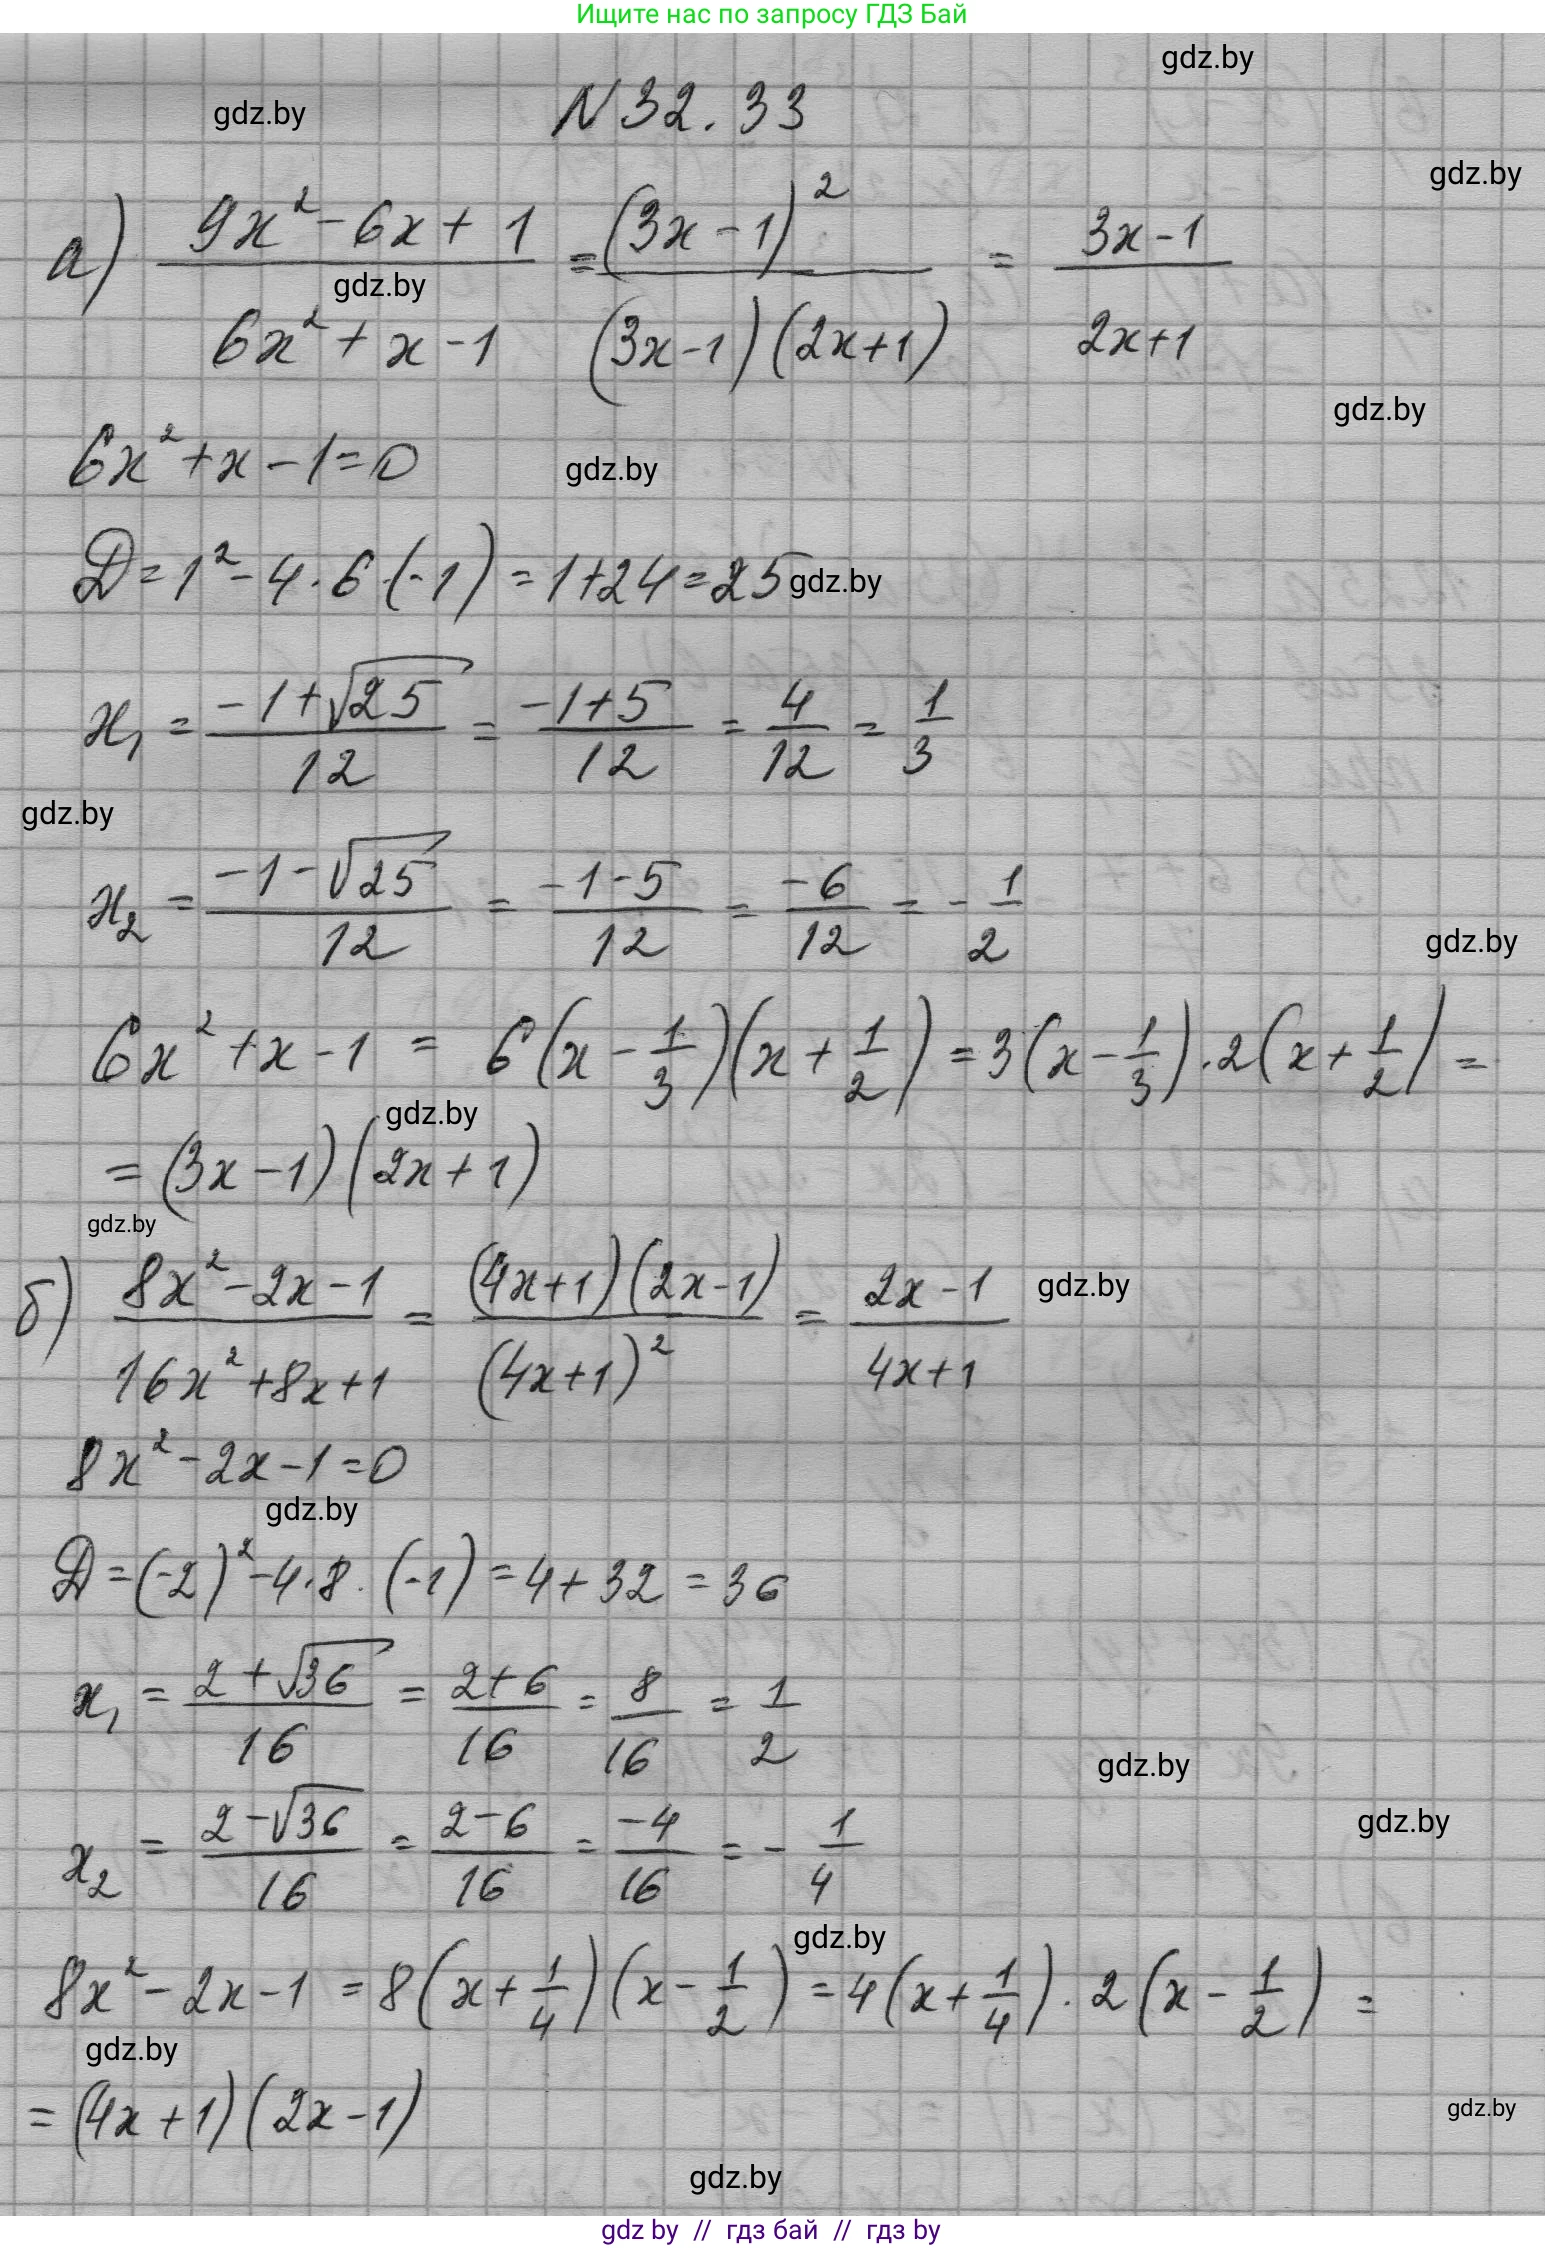 Ищите нас по запросу ГДЗ Бай
gdz.by
gdz.by N 32.33
gdz.by
а) (9x² - 6x + 1)/(6x² + x - 1) = (3x - 1)²/((3x - 1)(2x + 1)) = (3x - 1)/(2x + 1)
gdz.by
gdz.by
6x² + x - 1 = 0 gdz.by
D = 1² - 4 · 6 · (-1) = 1 + 24 = 25 gdz.by
x₁ = (-1 + √25)/12 = (-1 + 5)/12 = 4/12 = 1/3
gdz.by
x₂ = (-1 - √25)/12 = (-1 - 5)/12 = -6/12 = -1/2
gdz.by
6x² + x - 1 = 6(x - 1/3)(x + 1/2) = 3(x - 1/3) · 2(x + 1/2) =
gdz.by
= (3x - 1)(2x + 1)
gdz.by
б) (8x² - 2x - 1)/(16x² + 8x + 1) = ((4x + 1)(2x - 1))/(4x + 1)² = (2x - 1)/(4x + 1) gdz.by
8x² - 2x - 1 = 0
gdz.by
D = (-2)² - 4 · 8 · (-1) = 4 + 32 = 36
x₁ = (2 + √36)/16 = (2 + 6)/16 = 8/16 = 1/2
gdz.by
gdz.by
x₂ = (2 - √36)/16 = (2 - 6)/16 = -4/16 = -1/4
gdz.by
8x² - 2x - 1 = 8(x + 1/4)(x - 1/2) = 4(x + 1/4) · 2(x - 1/2) =
gdz.by
= (4x + 1)(2x - 1)
gdz.by
gdz.by
gdz by // гдз бай // гдз by